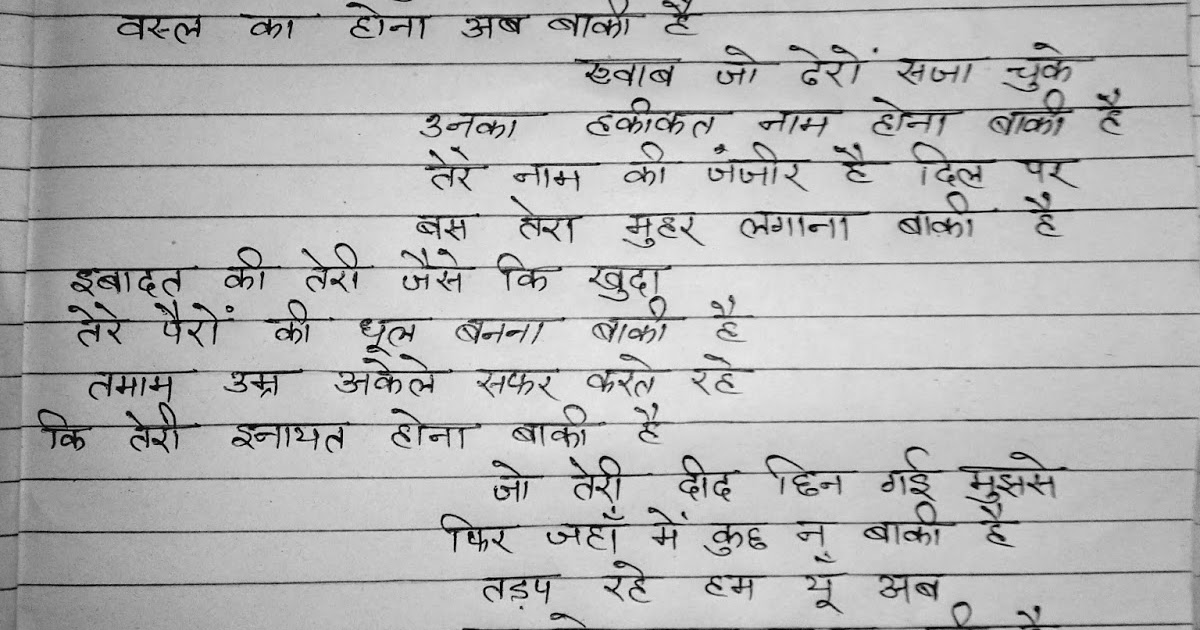 वस्ल का होना अब बाकी है
ख्वाब जो ढेरों सजा चुके
उनका हकीकत नाम होना बाकी है
तेरे नाम की जंजीर है दिल पर
बस तेरा मुहर लगाना बाकी है
इबादत की तेरी जैसे कि खुदा
तेरे पैरों की धूल बनना बाकी है
तमाम उम्र अकेले सफर करते रहे
कि तेरी इनायत होना बाकी है
जो तेरी दीद छिन गई मुझसे
फिर जहाँ में कुछ न बाकी है
तड़प रहे हम यूँ अब